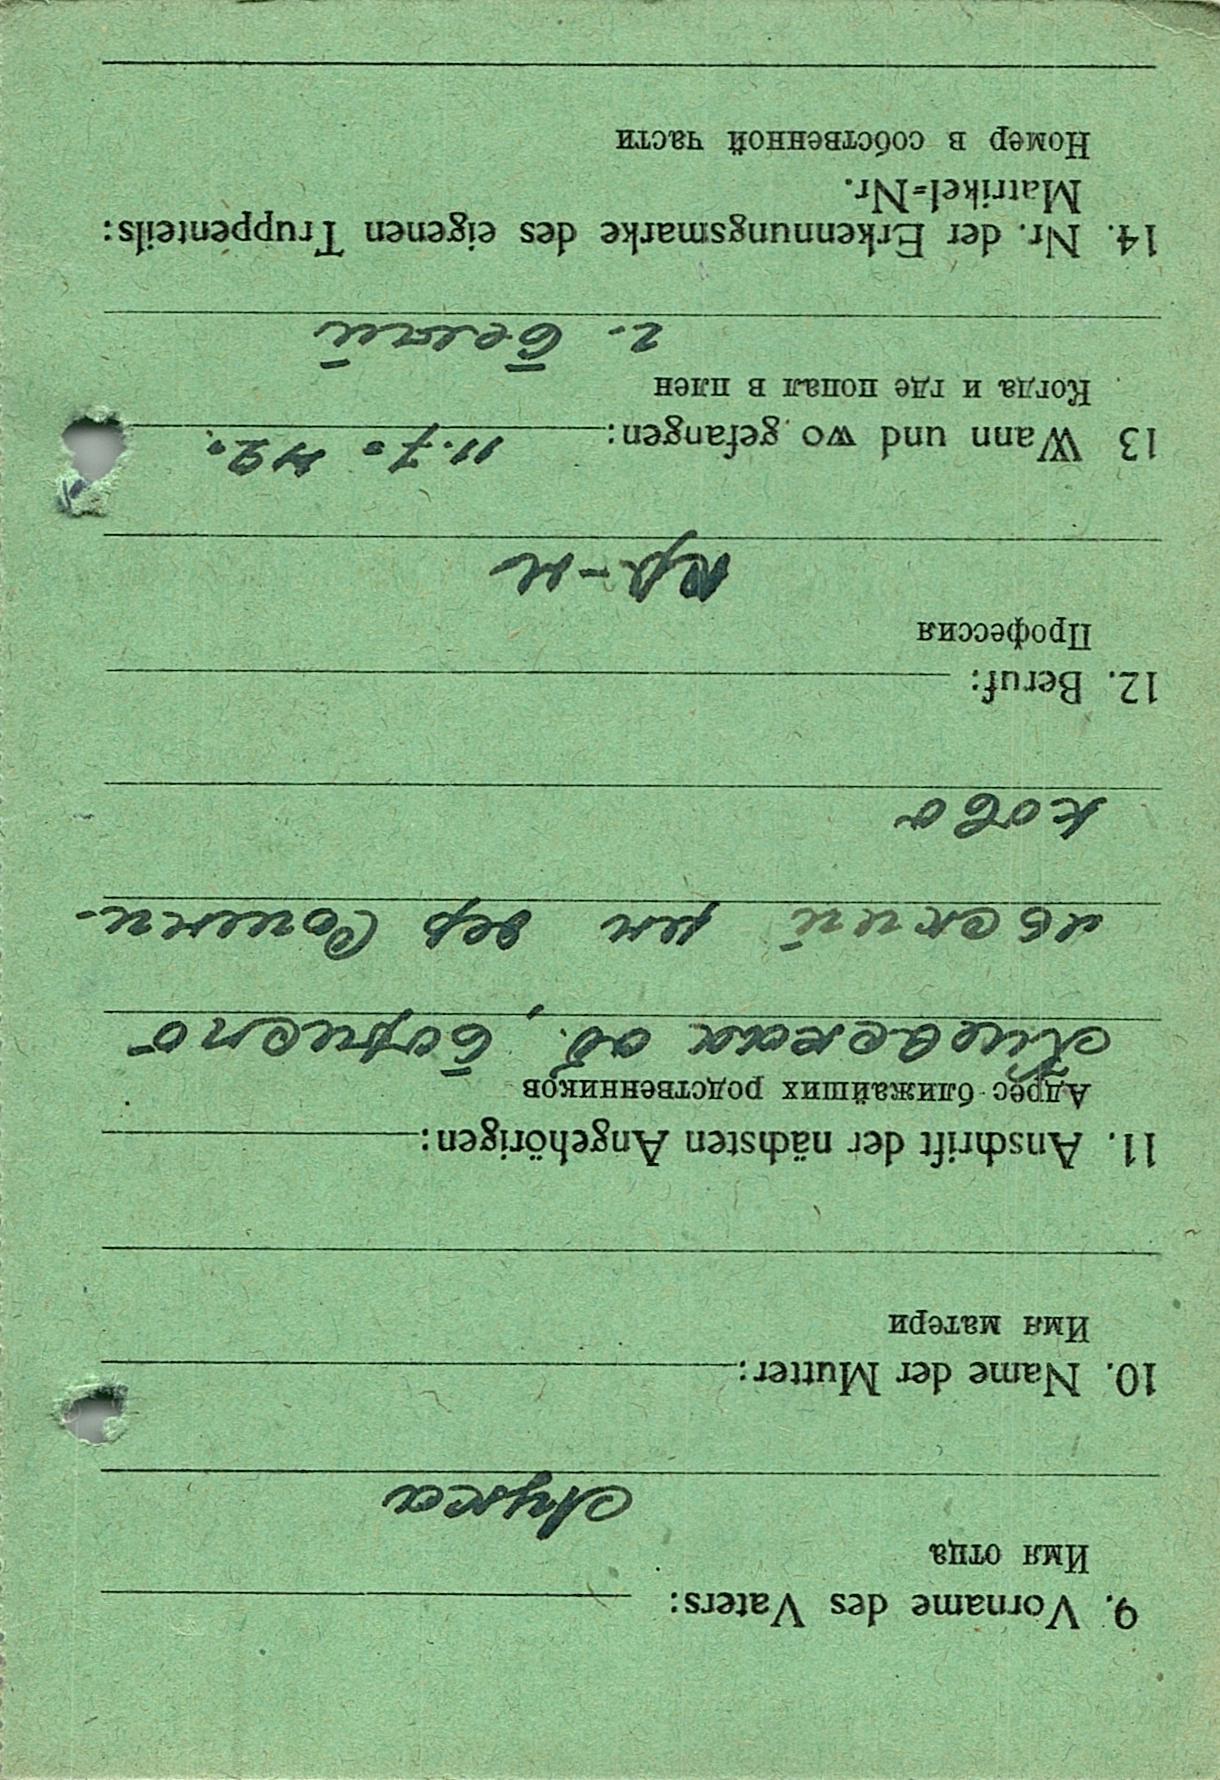 9. Vorname des Vaters:
Имя отца
Лука
10. Name der Mutter:
Имя матери
11. Anschrift der nächsten Angehörigen:
Адрес ближайших родственников
Киевская об. Бориспо
льский рн дер Сошни-
ково
12. Beruf:
Профессия
кр-н
13 Wann und wo gefangen: 11.7. 42.
Когда и где попал в плен
г. Белый
14. Nr. der Erkennungsmarke des eigenen Truppenteils:
Matrikel=Nr.
Номер в собственной части